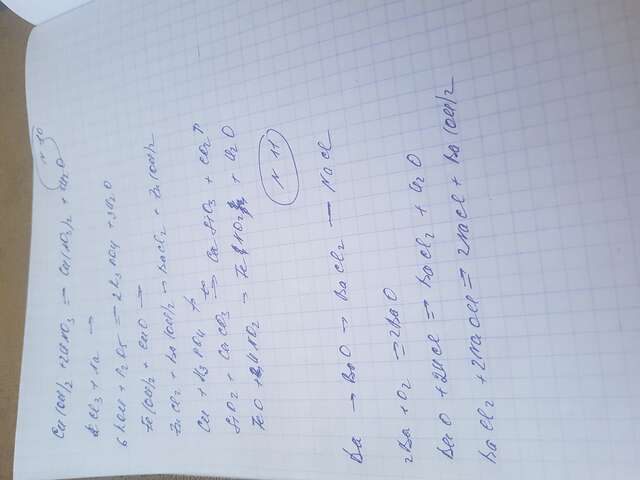 N 10
Ca(OH)2 + 2HNO3 = Ca(NO3)2 + H2O
Cl3 + Na →
6 KOH + P2O5 = 2K3PO4 + 3H2O
Fe(OH)2 + CaO →
ZnCl2 + Ba(OH)2 → BaCl2 + Zn(OH)2
Cu + H3PO4 ↛
SiO2 + CaCO3 = CaSiO3 + CO2↑
FeO + HNO3 → + H2O
N 11
Ba → BaO → BaCl2 — NaCl
2Ba + O2 = 2BaO
BaO + 2HCl = BaCl2 + H2O
BaCl2 + 2NaOH = 2NaCl + Ba(OH)2